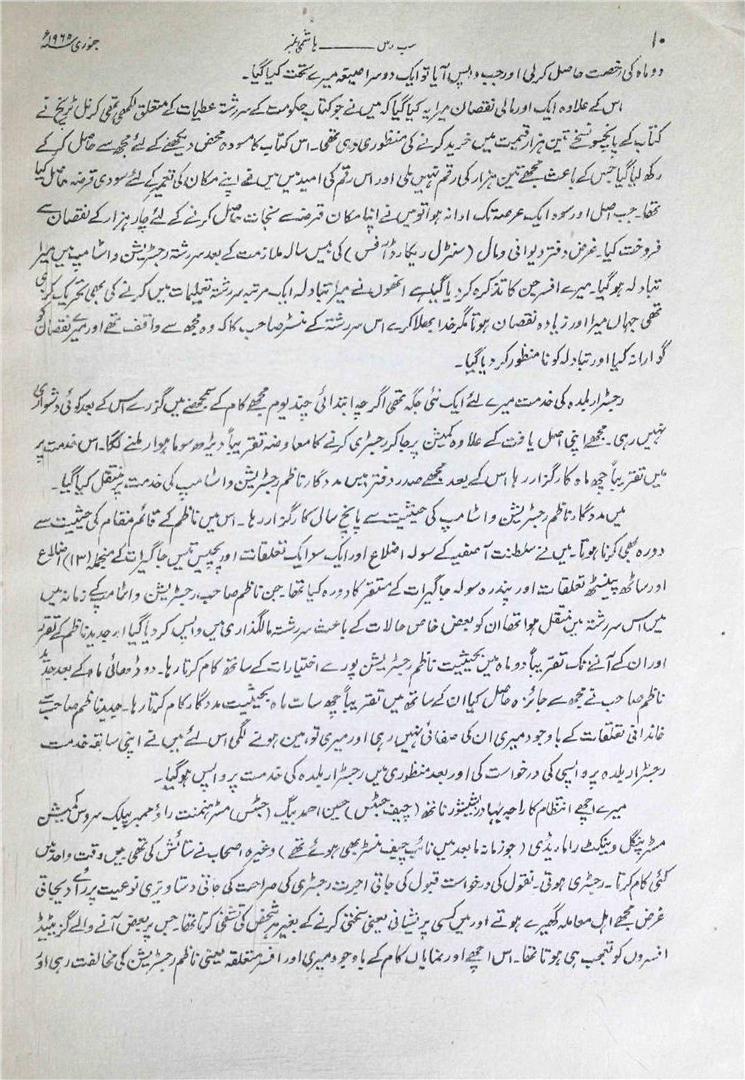 ۱۰
سب رس ——— ہاشمی نمبر
جنوری ۱۹۶۵ء
دو ماہ کی رخصت حاصل کرلی اور جب واپس آیا تو ایک دوسرا صیغہ میرے تحت کیا گیا۔
اس کے علاوہ ایک اور مالی نقصان میرا یہ کیا گیا کہ میں نے جو کتاب حکومت کے سررشتہ عطیات کے متعلق لکھی تھی کرنل ٹرنچ نے
کتاب کے پانچسو نسخے تین ہزار قیمت میں خرید کرنے کی منظوری دی تھی۔ اس کتاب کا مسودہ محض دیکھنے کے لئے مجھ سے حاصل کر کے
رکھ لیا گیا جس کے باعث مجھے تین ہزار کی رقم نہیں ملی اور اس رقم کی امید میں میں نے اپنے مکان کی تعمیر کے لئے سودی قرضہ حاصل کیا
تھا۔ جب اصل اور سود ایک عرصہ تک ادا نہ ہوا تو میں نے اپنا مکان قرضہ سے نجات حاصل کرنے کے لئے چار ہزار کے نقصان سے
فروخت کیا۔ غرض دفتر دیوانی و مال (سنٹرل ریکارڈ آفس) کی بیس سالہ ملازمت کے بعد سررشتہ رجسٹریشن و اسٹامپ میں میرا
تبادلہ ہوگیا۔ میرے افسر جن کا تذکرہ کردیا گیا ہے انھوں نے میرا تبادلہ ایک مرتبہ سررشتہ تعلیمات میں کرنے کی بھی تحریک کردی
تھی جہاں میرا اور زیادہ نقصان ہوتا مگر خدا بھلا کرے اس سررشتہ کے منسٹر صاحب کا کہ وہ مجھ سے واقف تھے اور میرے نقصان کو
گوارا نہ کیا اور تبادلہ کو نا منظور کردیا گیا۔
رجسٹرار بلدہ کی خدمت میرے لئے ایک نئی جگہ تھی اگرچہ ابتدائی چند یوم مجھے کام کے سمجھنے میں گزرے اس کے بعد کوئی دشواری
نہیں رہی۔ مجھے اپنی اصل یافت کے علاوہ کمیشن پر جا کر رجسٹری کرنے کا معاوضہ تقریباً دیڑھ سو ماہوار ملنے لگا۔ اس خدمت پر
میں تقریباً چھ ماہ کارگزار رہا اس کے بعد مجھے صدر دفتر میں مددگار ناظم رجسٹریشن و اسٹامپ کی خدمت پر منتقل کیا گیا۔
میں مددگار ناظم رجسٹریشن و اسٹامپ کی حیثیت سے پانچ سال کارگزار رہا۔ اس میں ناظم کے قائم مقام کی حیثیت سے
دورہ بھی کرنا ہوتا۔ میں نے سلطنت آصفیہ کے سولہ اضلاع اور ایک سو ایک تعلقات اور پچیس تیس جاگیرات کے منجملہ (۱۳) اضلاع
اور ساٹھ پینسٹھ تعلقات اور پندرہ سولہ جاگیرات کے مستقر کا دورہ کیا تھا۔ جن ناظم صاحب رجسٹریشن و اسٹامپ کے زمانہ میں
میں اس سررشتہ میں منتقل ہوا تھا ان کو بعض خاص حالات کے باعث سررشتہ مالگذاری میں واپس کردیا گیا اور جدید ناظم کے تقرر
اور ان کے آنے تک تقریباً دو ماہ میں بحیثیت ناظم رجسٹریشن پورے اختیارات کے ساتھ کام کرتا رہا۔ دو ڈھائی ماہ کے بعد جدید
ناظم صاحب نے مجھ سے جائزہ حاصل کیا ان کے ساتھ میں تقریباً چھ سات ماہ بحیثیت مددگار کام کرتا رہا۔ جدید ناظم صاحب سے
خاندانی تعلقات کے باوجود میری ان کی صفائی نہیں رہی اور میری توہین ہونے لگی اس لئے میں نے اپنی سابقہ خدمت
رجسٹرار بلدہ پر واپسی کی درخواست کی اور بعد منظوری میں رجسٹرار بلدہ کی خدمت پر واپس ہوگیا۔
میرے اچھے انتظام کا راجہ بہادر بشیشور ناتھ (چیف جسٹس) حسین احمد بیگ (جسٹس) مسٹر ہنمنت راؤ ممبر پبلک سروس کمیشن
مسٹر پنگل وینکٹ راما ریڈی (جو زمانہ ما بعد میں نائب چیف منسٹر بھی ہوئے تھے) وغیرہ اصحاب نے ستائش کی تھی میں وقت واحد میں
کئی کام کرتا۔ رجسٹری ہوتی۔ نقول کی درخواست قبول کی جاتی اجرت رجسٹری کی صراحت کی جاتی دستاویزی نوعیت پر رائے دیجاتی
غرض مجھے اہل معاملہ گھیرے ہوتے اور میں کسی پر نشانی یعنی سختی کرنے کے بغیر ہر شخص کی تشفی کرتا تھا۔ جس پر بعض آنے والے گزیٹیڈ
افسروں کو تعجب ہی ہوتا تھا۔ اس اچھے اور نمایاں کام کے باوجود میری اور افسر متعلقہ یعنی ناظم رجسٹریشن کی مخالفت رہی اور